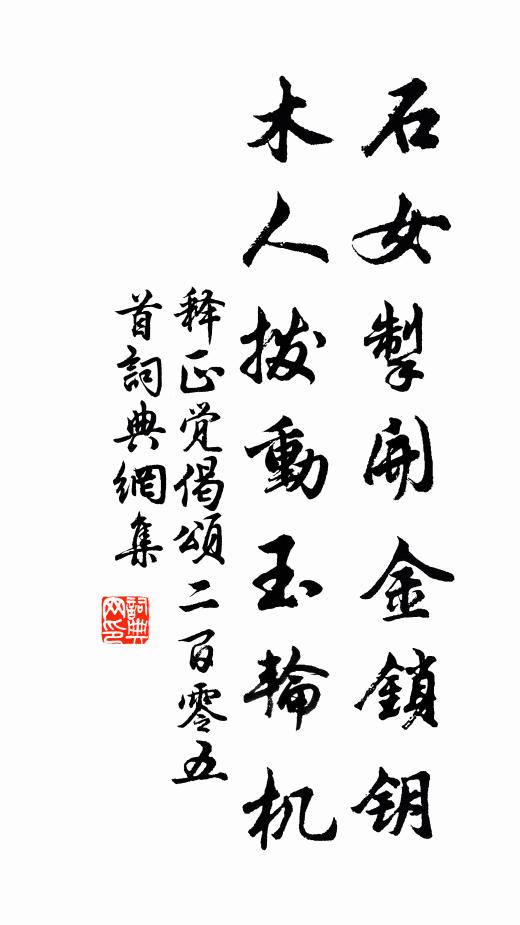 石女掣開金鎖钥
木人撥動玉輪机
释正觉偈頌二百零五
首詞典網集
詞典网印